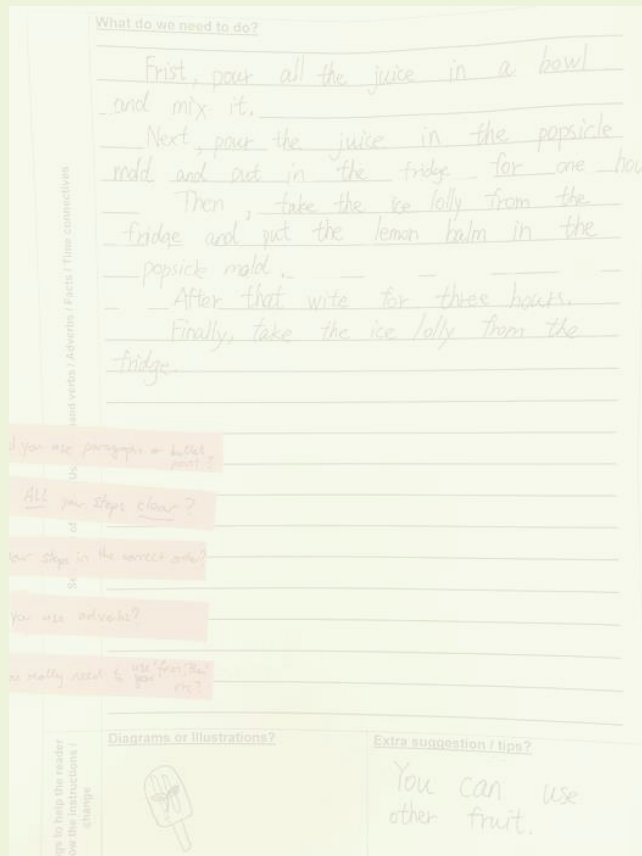 What do we need to do?
Frist, pour all the juice in a bowl
and mix it.
Next, pour the juice in the popsicle
mold and out in the fridge for one hou
Then, take the ice lolly from the
fridge and put the lemon balm in the
popsicle mold.
After that wite for three hours.
Finally, take the ice lolly from the
fridge.
verbs / Adverbs / Facts / Time connectives
you use paragraphs or bullet
point?
ALL your steps clear?
steps in the correct order?
you use adverbs?
really need to use "first, then"
etc?
Diagrams or Illustrations?
Extra suggestion / tips?
You can use
other fruit.
to help the reader
the instructions /
change